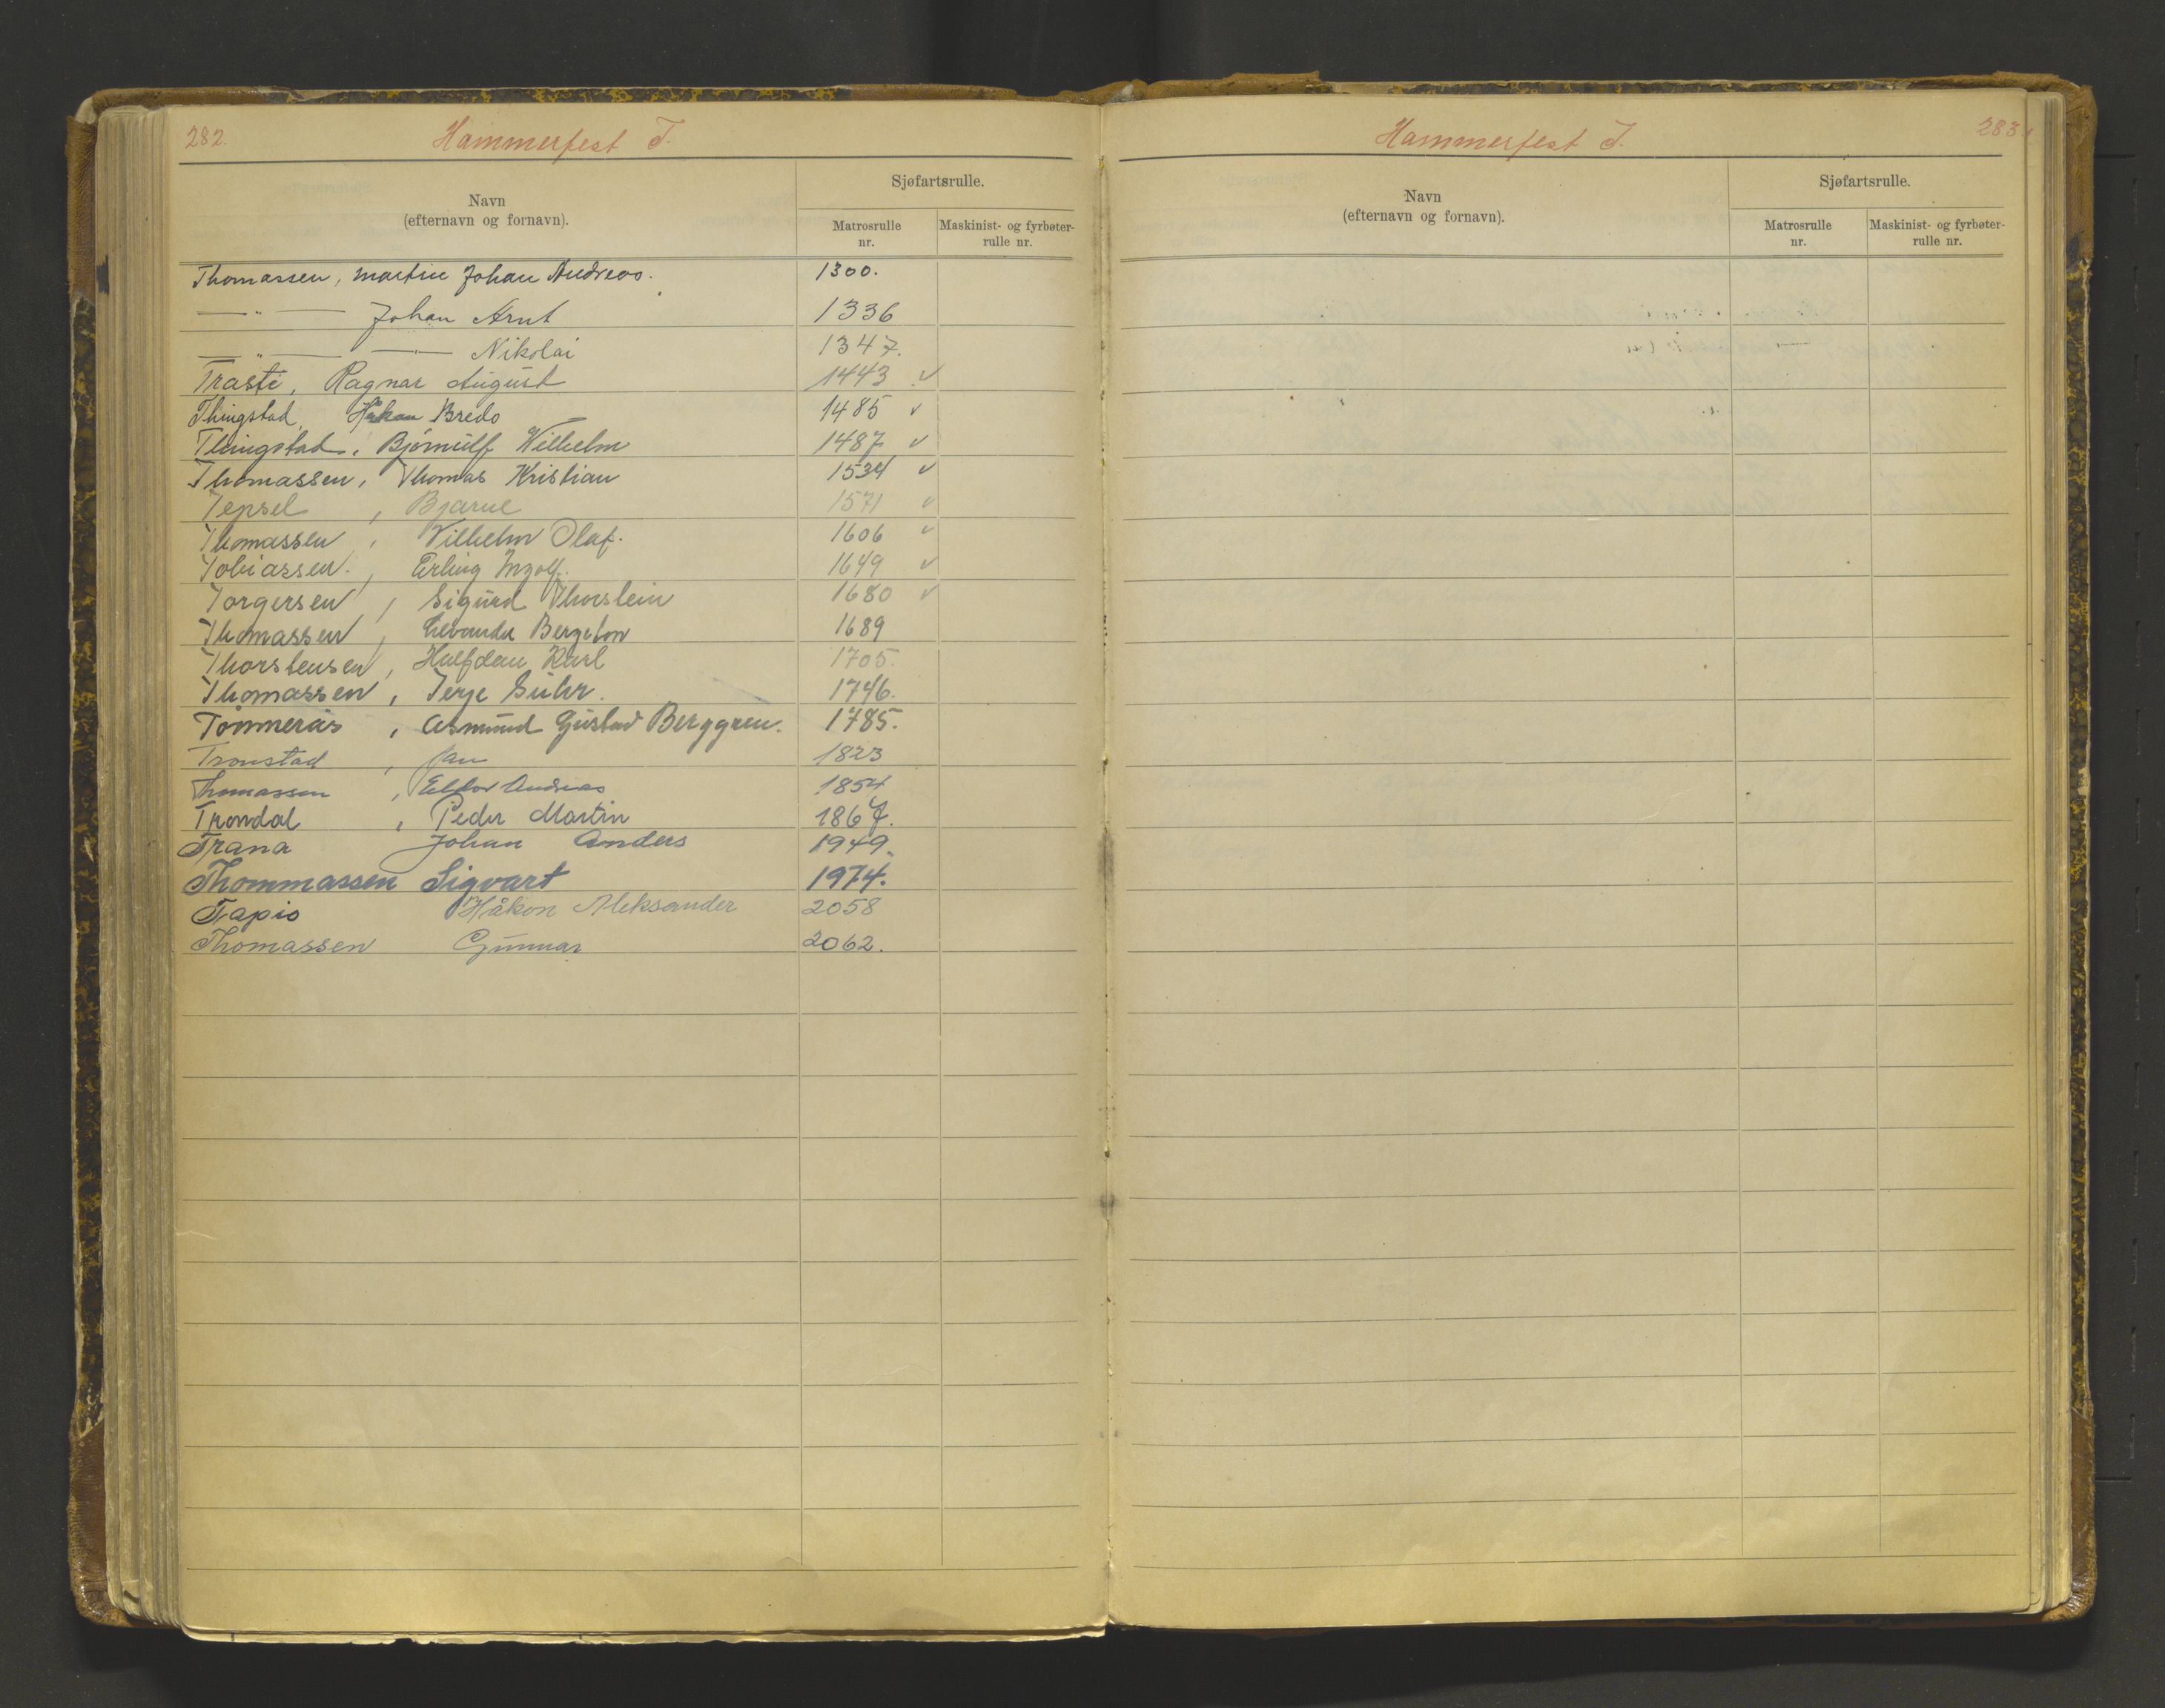 282.
Hammerfest T.
Navn
(efternavn og fornavn).
Sjøfartsrulle.
Matrosrulle
nr.
Maskinist- og fyrbøter-
rulle nr.
Thomassen, Martin Johan Andreas. 1300.
—"— Johan Arnt 1336
—"— —"— Nikolai 1347.
Trasti, Ragnar August 1443 ✓
Thingstad, Håkon Bredo 1485 ✓
Thingstad, Bjørnulf Wilhelm 1487 ✓
Thomassen, Thomas Kristian 1534 ✓
Tepsel, Bjarne 1571 ✓
Thomassen, Vilhelm Olaf. 1606 ✓
Tobiassen, Erling Ingolf. 1649 ✓
Torgersen, Sigurd Thorstein 1680 ✓
Thomassen, Bergeton 1689
Thorstensen, Halfdan Karl 1705.
Thomassen, Terje Suhr. 1746.
Tømmerås, Asmund Gustav Berggren. 1785.
Tronstad, Jan 1823
Thomassen, Eldor Andreas 1854
Trondal, Peder Martin 1867.
Trana Johan Anders 1949.
Thommassen Sigvart 1974.
Tapio Håkon Aleksander 2058
Thomassen Gunnar 2062.
Hammerfest T.
283.
Navn
(efternavn og fornavn).
Sjøfartsrulle.
Matrosrulle
nr.
Maskinist- og fyrbøter-
rulle nr.